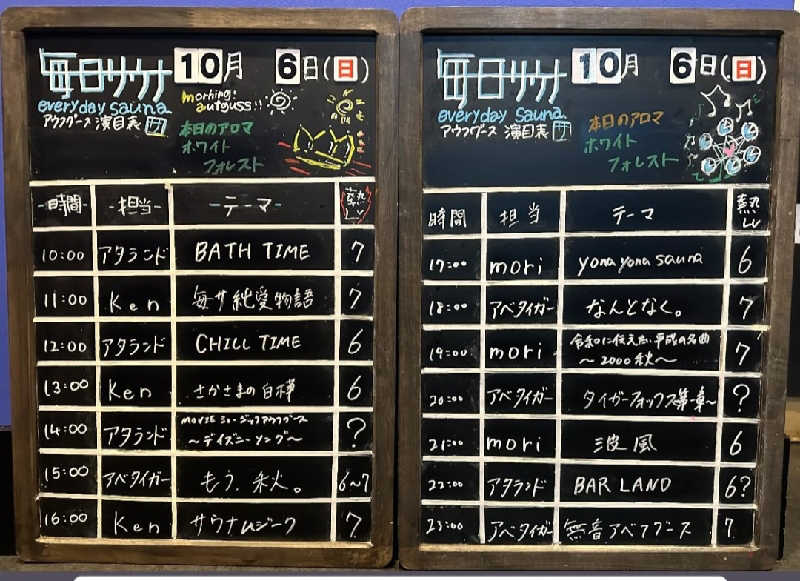 毎日サウナ 10月 6日(日)
everyday sauna
morning! autguss!!
アウフグース 演目表 サ
本日のアロマ
ホワイト
フォレスト
時間 担当 テーマ 熱Lv
10:00 アタランド BATH TIME 7
11:00 Ken 毎サ純愛物語 7
12:00 アタランド CHILL TIME 6
13:00 Ken さかさまの白樺 6
14:00 アタランド MOVIEミュージックアウフグース ?
〜ディズニーソング〜
15:00 アベタイガー もう、秋。 6〜7
16:00 Ken サウナムジーク 7
毎日サウナ 10月 6日(日)
everyday sauna
アウフグース 演目表 サ
本日のアロマ
ホワイト
フォレスト
時間 担当 テーマ 熱Lv
17:00 mori yona yona sauna 6
18:00 アベタイガー なんとなく。 7
19:00 mori 令和に伝えたい平成の名曲 7
〜2000秋〜
20:00 アベタイガー タイガーフォックス第一章〜 ?
21:00 mori 波風 6
22:00 アタランド BAR LAND 6?
23:00 アベタイガー 無音アベフグース 7